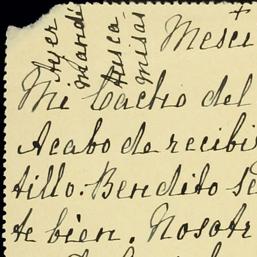 Ayer
mandé
tusca
misas
Mesci
Mi Cacho del
Acabo de recibi
tillo. Bendito se
te bien. Nosotr